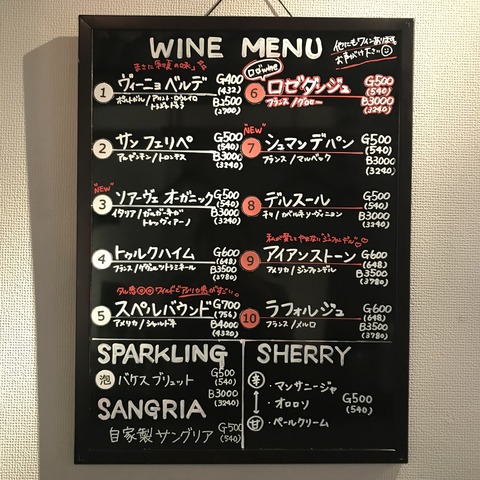 WINE MENU
他にもワインあります。
お声がけ下さい
まさに知覧の味
1 ヴィーニョベルデ G400
(432)
ポルトガル/
B2500
(2700)
2 サンフェリペ G500
(540)
アルゼンチン/トロンテス
B3000
(3240)
"NEW"
3 ソアーヴェオーガニック G500
(540)
イタリア/ガルガーネガ
トレッヴィアーノ
B3000
(3240)
4 トゥルクハイム G600
(648)
フランス/ゲヴュルツトラミネール
B3500
(3780)
タル香 ワイルドとアメリカ感がすごい
5 スペルバウンド G700
(756)
アメリカ/シャルドネ
B4000
(4320)
ロゼwine
6 ロゼダンジュ G500
(540)
フランス/グロロー
B3000
(3240)
"NEW"
7 シュマンデパン G500
(540)
フランス/マルベック
B3000
(3240)
8 デルスール G500
(540)
チリ/カベルネソーヴィニヨン
B3000
(3240)
私が愛してやまないジンファンデル
9 アイアンストーン G600
(648)
アメリカ/ジンファンデル
B3500
(3780)
10 ラフォルジュ G600
(648)
フランス/メルロ
B3500
(3780)
SPARKLING
泡 バケスブリュット G500
(540)
B3000
(3240)
SANGRIA
自家製サングリア G500
(540)
SHERRY
辛 ・マンサニージャ
・オロロソ G500
(540)
甘 ・ペールクリーム